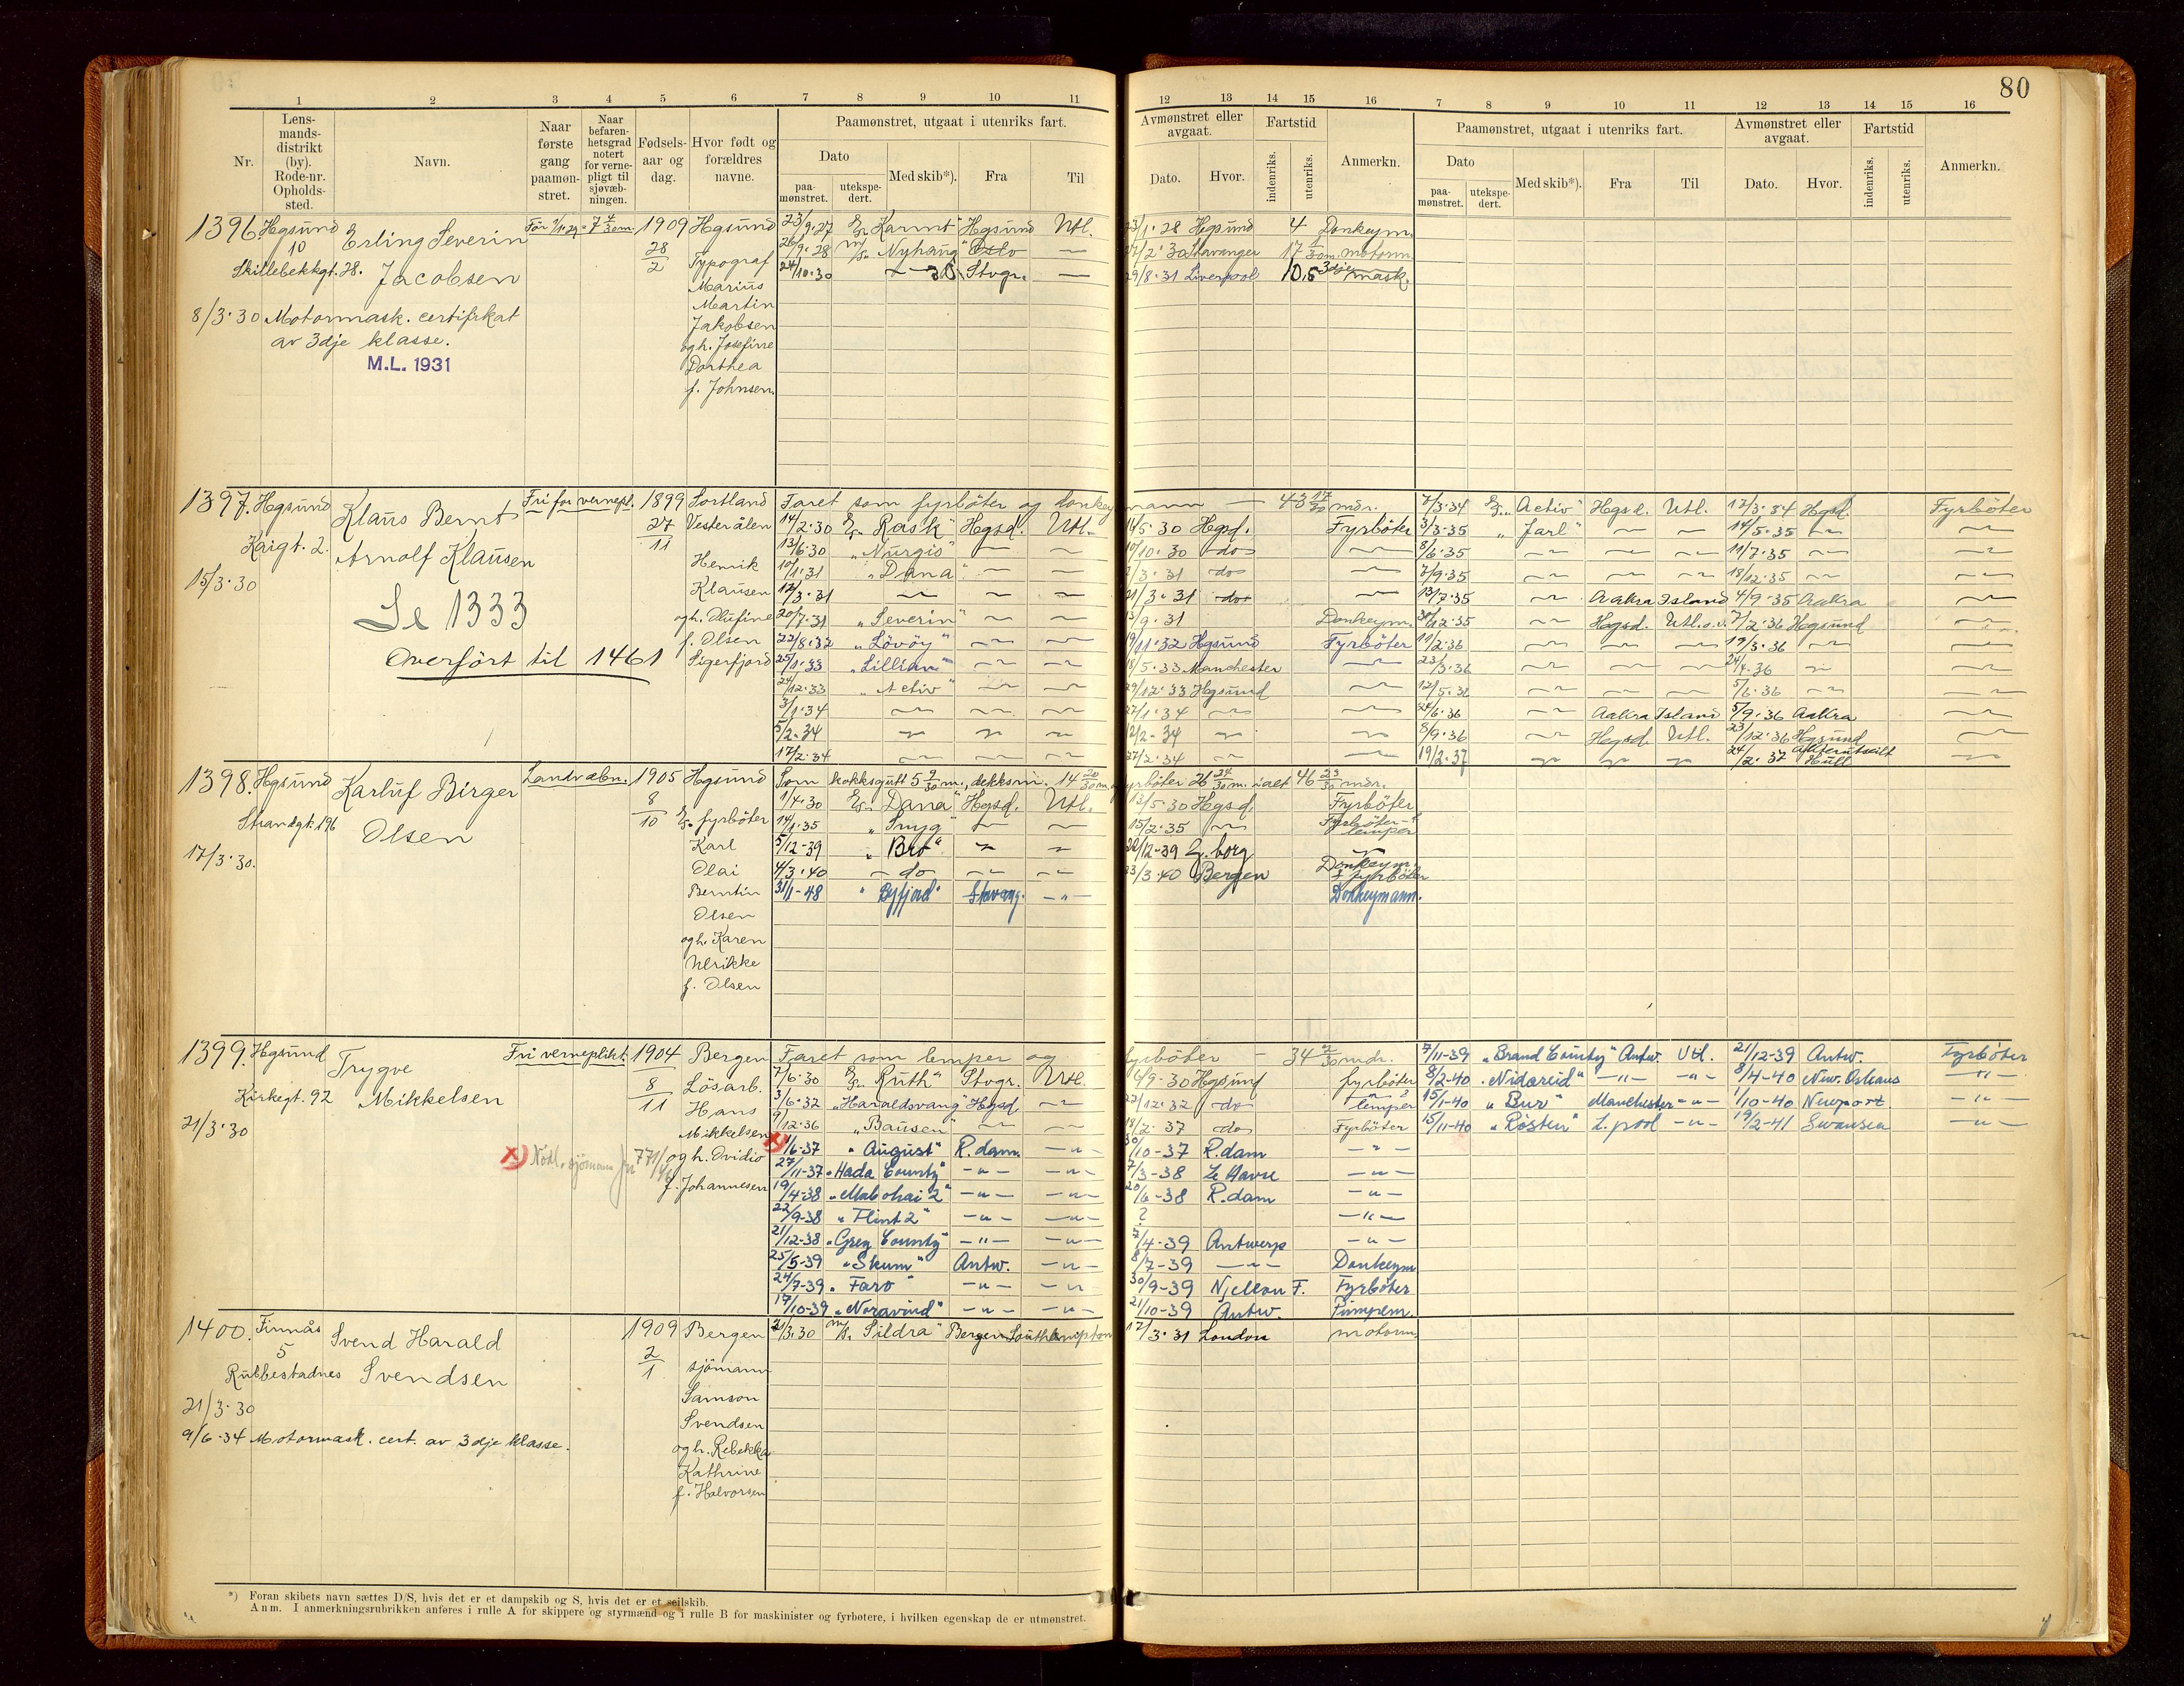 80
1 2 3 4 5 6 7 8 9 10 11 12 13 14 15 16 7 8 9 10 11 12 13 14 15 16
Nr.
Lensmandsdistrikt (by). Rode-nr. Opholdssted.
Navn.
Naar første gang paamønstret.
Naar befarenhetsgrad notert for vernepligt til sjøvæbningen.
Fødselsaar og dag.
Hvor født og forældres navne.
Paamønstret, utgaat i utenriks fart.
Dato
paamønstret.
utekspedert.
Med skib*).
Fra
Til
Avmønstret eller avgaat.
Dato.
Hvor.
Fartstid
indenriks.
utenriks.
Anmerkn.
Paamønstret, utgaat i utenriks fart.
Dato
paamønstret.
utekspedert.
Med skib*).
Fra
Til
Avmønstret eller avgaat.
Dato.
Hvor.
Fartstid
indenriks.
utenriks.
Anmerkn.
1396. Hgsund 10 Skillebekkgt. 28.
Erling Severin Jacobsen
8/3.30 Motormask. certifikat av 3dje klasse.
M.L. 1931
1909 28/2
Hgsund Typograf Marius Martin Jakobsen og h. Josefine Dorthea f. Johnsen.
23/9.27 Karmt Hgsund Utl. 23/1.28 Hgsund 4 Donkeym.
26/9.28 M/S Nyhaug Oslo — 27/2.30 Stavanger 17 motorm.
24/10.30 — Stvgr. — 29/8.31 Liverpool 10,5 3dje mask.
1397. Hgsund Kaigt. 2.
15/3.30
Klaus Bernt Arnolf Klausen
Se 1333
Overført til 1461
Fri for vernepl.
1899 27/11
Sortland Vesterålen Henrik Klausen og h. Olufine f. Olsen Sigerfjord
Faret som fyrbøter og donkeymann — 43 17/30 mdr.
14/2.30 "Rask" Hgsd. Utl. 14/5 30 Hgsd. Fyrbøter
13/6.30 "Nurgis" — — 10/10.30 do —
10/1.31 "Dana" — — /3.31 do —
12/3.31 — — — 21/3.31 do —
20/7.31 "Severin" — — /9.31 Donkeym.
22/8.32 "Lövöy" — — 19/11.32 Hgsund Fyrbøter
25/1.33 "Lillian" — — 18/5.33 Manchester —
24/12.33 "Activ" — — 29/12.33 Hgsund —
3/1.34 — — — 27/1.34 — —
5/2.34 — — — 12/2.34 — —
17/2.34 — — — 27/2.34 — —
7/3.34 "Activ" Hgsd. Utl. 12/3.34 Hgsd. Fyrbøter
3/3.35 "Jarl" — — 14/5.35 — —
8/6.35 — — — 11/7.35 — —
7/9.35 — — — 18/12.35 — —
13/7.35 — Aakra Island 4/9.35 Aakra —
30/12.35 — Hgsd. Utl. 7/2.36 Hgsund —
11/2.36 — — — 19/3.36 — —
23/3.36 — — — 24/4.36 — —
12/5.36 — — — 5/6.36 — —
24/6.36 — Aakra Island 5/9.36 Aakra —
8/9.36 — Hgsd. Utl. 23/12.36 Hgsund —
19/2.37 — — — 24/2.37 Hull —
1398. Hgsund Strandgt. 196
17/3.30.
Karluf Birger Olsen
Landvæbn.
1905 8/10
Hgsund fyrbøter Karl Olai Berntin Olsen og h. Karen Ulrikke f. Olsen
Som kokksgutt 5 9/30 m., dekksm. 14 20/30 m. fyrbøter 26 24/30 m. ialt 46 23/30 mdr.
1/4.30 "Dana" Hgsd. Utl. 13/5.30 Hgsd. Fyrbøter
14/1.35 "Snyg" — — 15/2.35 — Fyrbøter lemper
5/12-39 "Bro" — — 22/12-39 G.borg —
4/3.40 — do — — 23/3.40 Bergen Donkeym. & fyrbøter
31/1-48 "Byfjord" Stavang. — Donkeymann.
1399. Hgsund Kirkegt. 92
21/3.30
Trygve Mikkelsen
Fri verneplikt.
1904 8/11
Bergen Lösarb. Hans Mikkelsen og h. Ovidio f. Johannesen
x) Nödl. sjömann 771/
Faret som lemper og fyrbøter — 34 2/30 mdr.
7/6.30 "Ruth" Stvgr. Utl. 6/9.30 Hgsund fyrbøter
3/6.32 "Haraldsvang" Hgsd. — 22/12.32 do lemper
9/12.36 "Bausen" — — 18/2.37 do Fyrbøter
x) 1/6-37 "August" R.dam. — 30/10-37 R.dam —
27/11-37 "Hada County" — — 7/3-38 Le Havre —
19/4-38 "Mabohai 2" — — 20/6-38 R.dam —
22/9-38 "Flint 2" — — ? —
21/12-38 "Grey County" — — 7/4-39 Antwerp —
25/5-39 "Skum" Antw. — 8/7-39 — Donkeym
24/7-39 "Faro" — — 30/9-39 Njellon F. Fyrbøter
17/10-39 "Noravind" — — 21/10-39 Antw. Pumpem.
7/11-39 "Brand County" Antw. Utl. 21/12-39 Antw. Fyrbøter
8/2-40 "Nidareid" — — 8/4-40 New. Orleans —
15/1-40 "Bur" Manchester — 1/10-40 Newport —
15/11-40 "Rösten" L.pool — 19/2-41 Swansea —
1400. Finnås 5 Rubbestadnes
Svend Harald Svendsen
21/3.30
9/6.34 Motormask. cert. av 3dje klasse.
1909 2/1
Bergen sjömann Samson Svendsen og h. Rebekka Kathrine f. Halvorsen
21/3.30 M/S "Sildra" Bergen Southampton 12/3.31 London motorm.
*) Foran skibets navn sættes D/S, hvis det er et dampskib og S, hvis det er et seilskib.
Anm. I anmerkningsrubrikken anføres i rulle A for skippere og styrmænd og i rulle B for maskinister og fyrbøtere, i hvilken egenskap de er utmønstret.